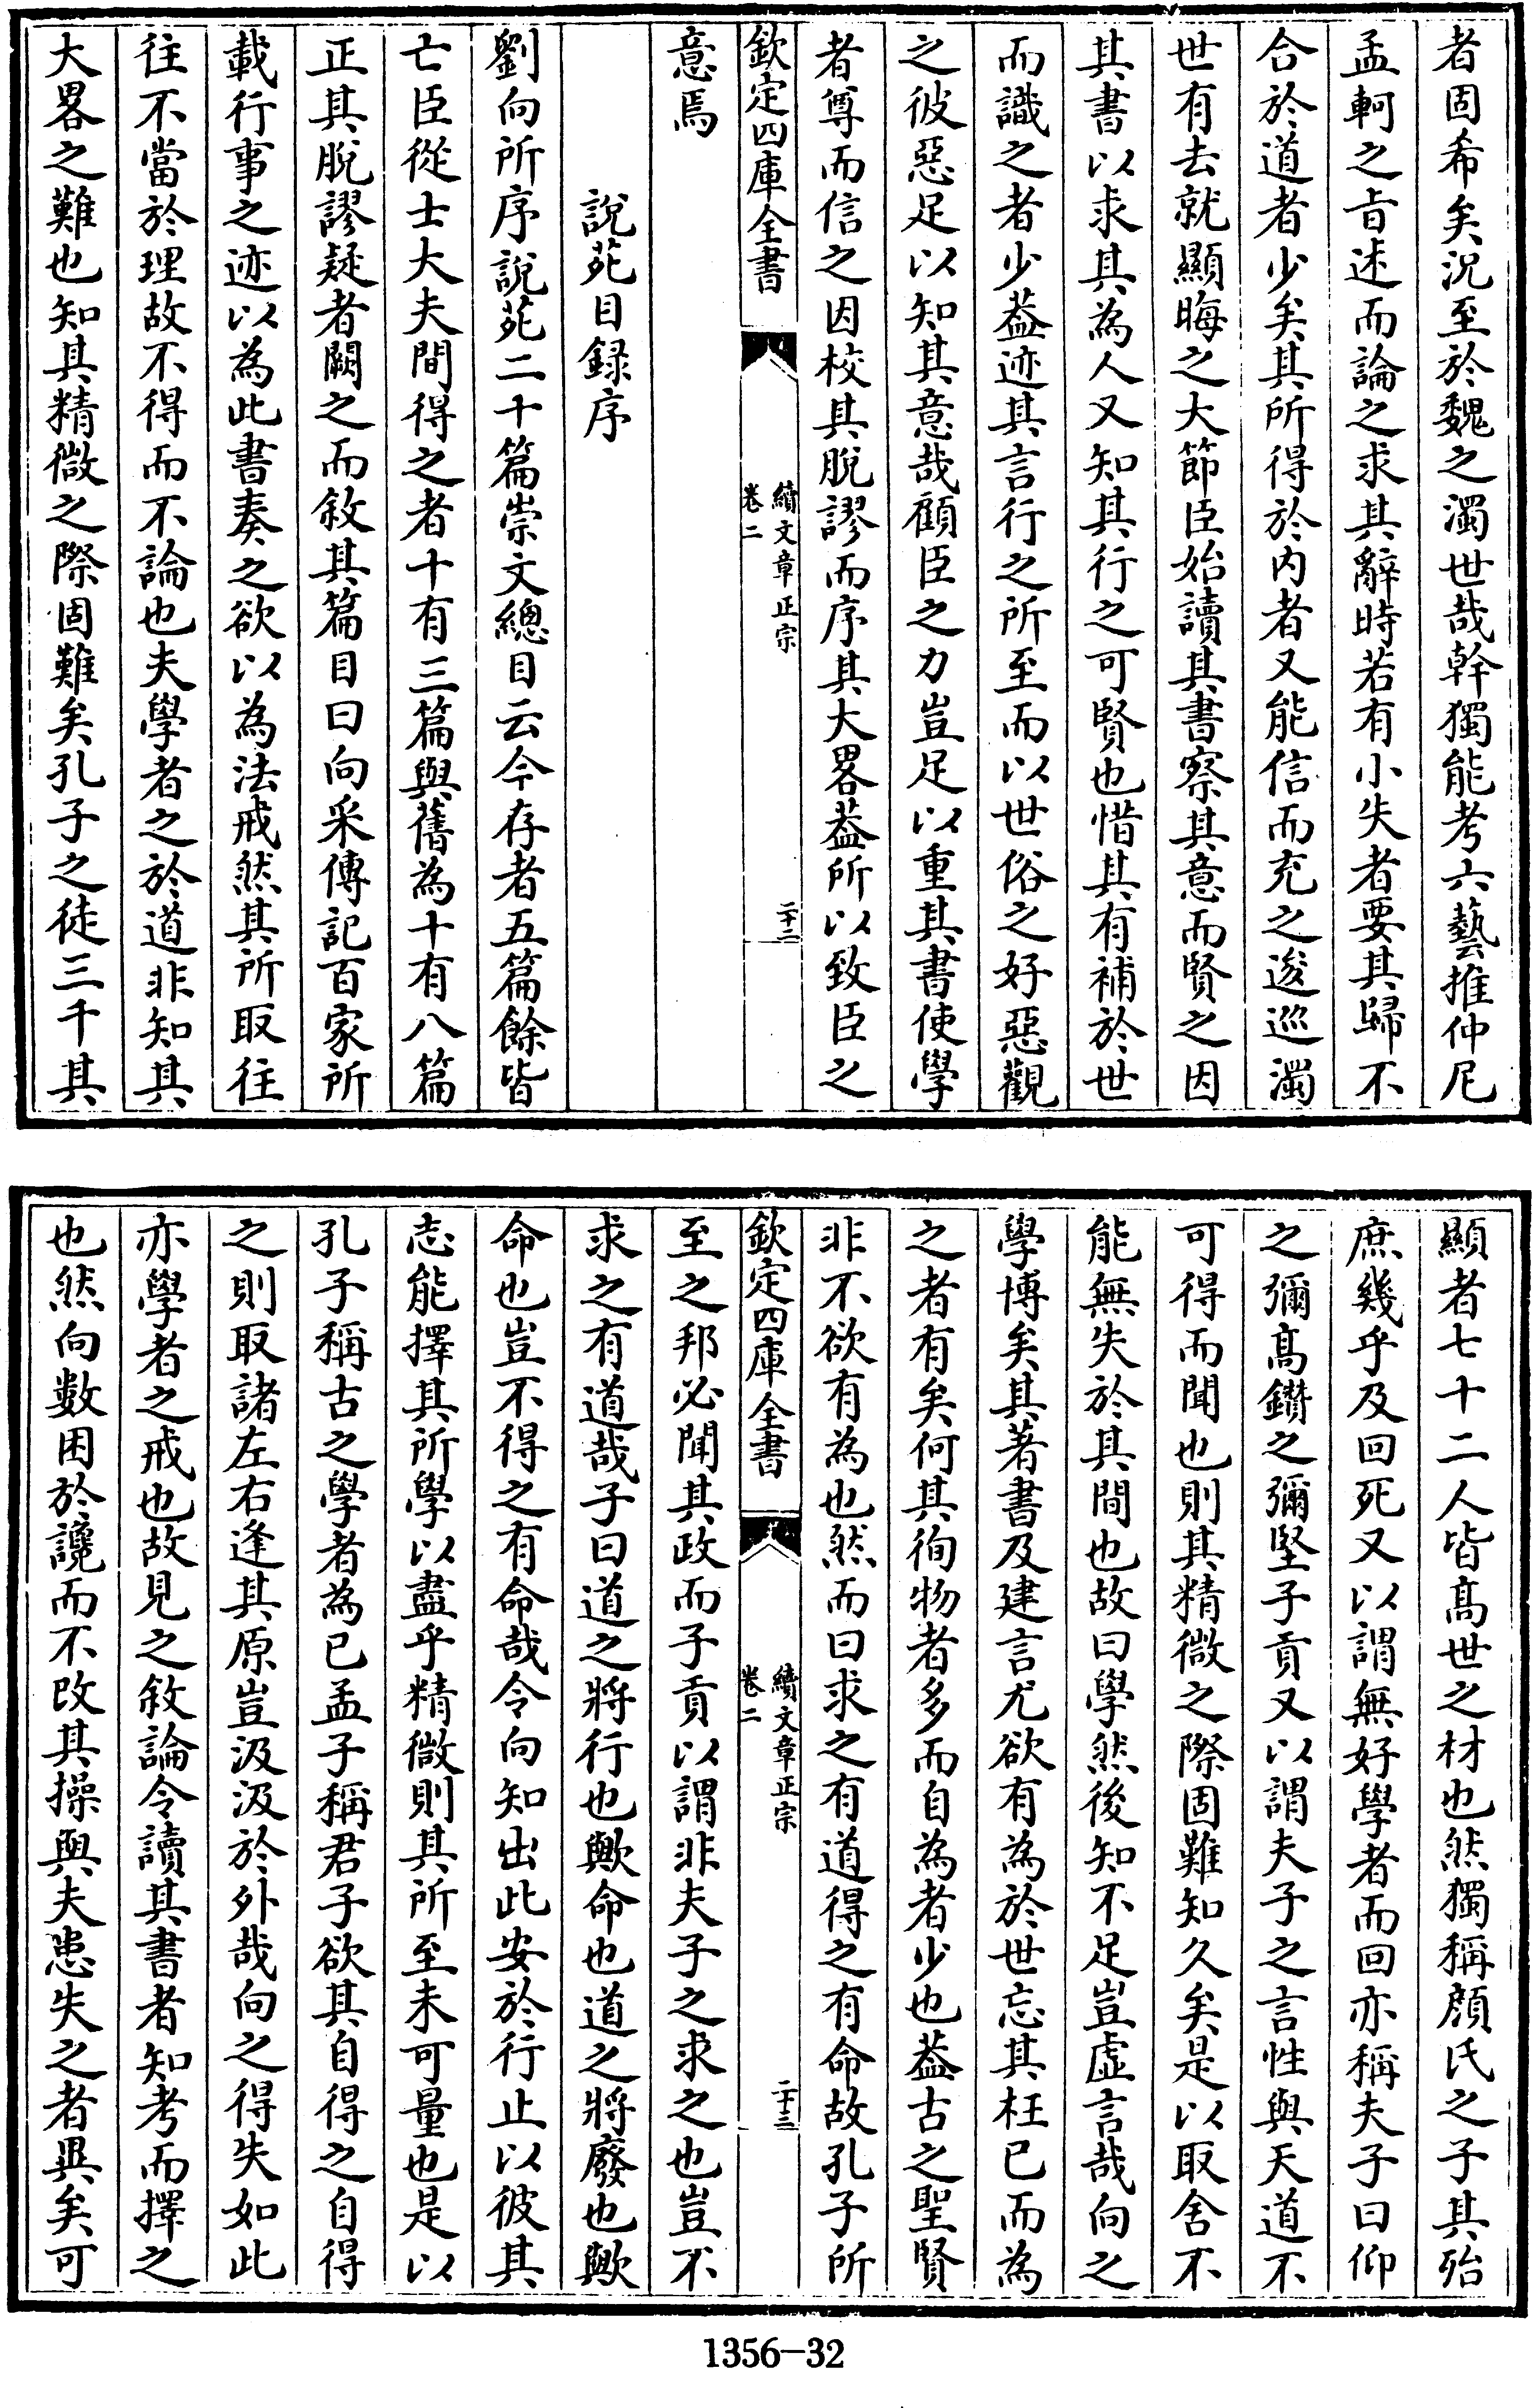 者固希矣況至於魏之濁世哉幹獨能考六藝推仲尼
孟軻之㫖述而論之求其辭時若有小失者要其歸不
合於道者少矣其所得於内者又能信而充之逡巡濁
世有去就顯晦之大節臣始讀其書察其意而賢之因
其書以求其為人又知其行之可賢也惜其有補於世
而識之者少葢迹其言行之所至而以世俗之好惡觀
之彼惡足以知其意哉顧臣之力豈足以重其書使學
者尊而信之因校其脫謬而序其大畧葢所以致臣之
欽定四庫全書
續文章正宗
卷二
二十二
意焉
說苑目録序
劉向所序說苑二十篇崇文總目云今存者五篇餘皆
亡臣從士大夫間得之者十有三篇與舊為十有八篇
正其脫謬疑者闕之而敘其篇目曰向采傳記百家所
載行事之迹以為此書奏之欲以為法戒然其所取往
往不當於理故不得而不論也夫學者之於道非知其
大畧之難也知其精微之際固難矣孔子之徒三千其
顯者七十二人皆髙世之材也然獨稱顔氏之子其殆
庶幾乎及回死又以謂無好學者而回亦稱夫子曰仰
之彌髙鑽之彌堅子貢又以謂夫子之言性與天道不
可得而聞也則其精微之際固難知久矣是以取舍不
能無失於其間也故曰學然後知不足豈虛言哉向之
學博矣其著書及建言尤欲有為於世忘其枉已而為
之者有矣何其徇物者多而自為者少也葢古之聖賢
非不欲有為也然而曰求之有道得之有命故孔子所
欽定四庫全書
續文章正宗
卷二
二十三
至之邦必聞其政而子貢以謂非夫子之求之也豈不
求之有道哉子曰道之將行也歟命也道之將廢也歟
命也豈不得之有命哉令向知出此安於行止以彼其
志能擇其所學以盡乎精微則其所至未可量也是以
孔子稱古之學者為已孟子稱君子欲其自得之自得
之則取諸左右逢其原豈汲汲於外哉向之得失如此
亦學者之戒也故見之敘論令讀其書者知考而擇之
也然向數困於讒而不改其操與夫患失之者異矣可
1356-32